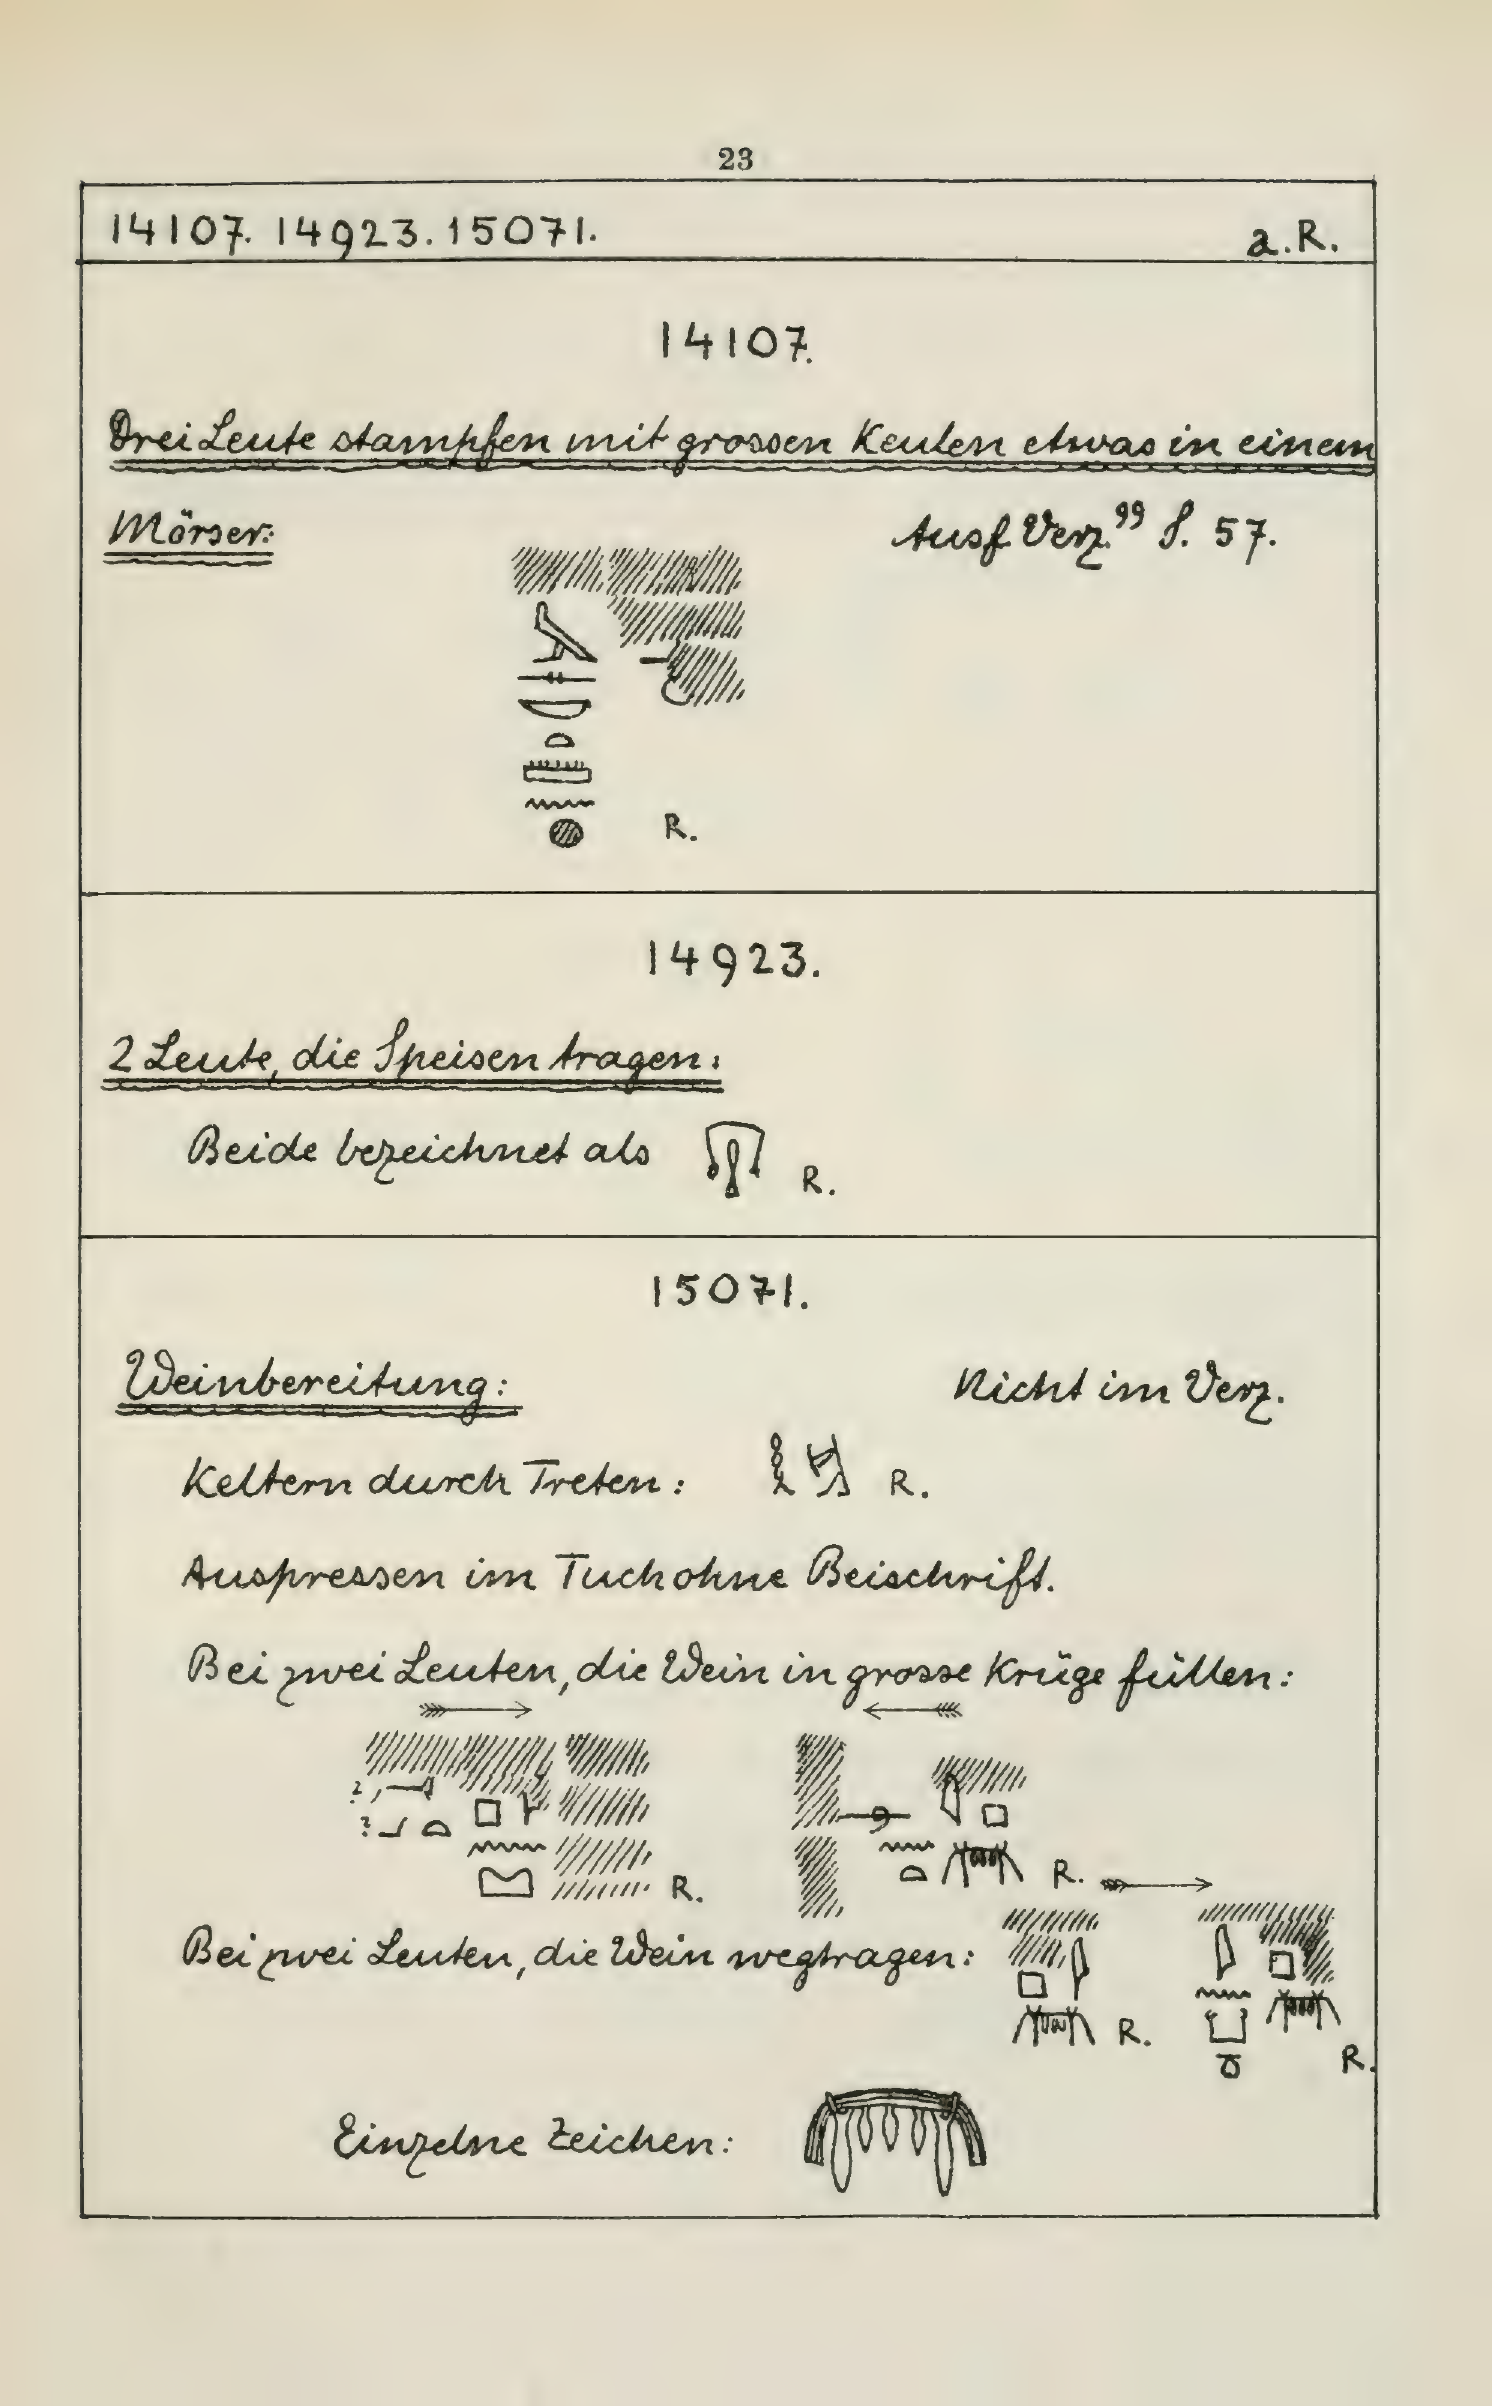 23
14107. 14923. 15071. a.R.
14107.
Drei Leute stampfen mit grossen Keulen etwas in einem
Mörser: Ausf. Verz.⁹⁹ S. 57.
R.
14923.
2 Leute, die Speisen tragen:
Beide bezeichnet als R.
15071.
Weinbereitung: Nicht im Verz.
Keltern durch Treten: R.
Auspressen im Tuch ohne Beischrift.
Bei zwei Leuten, die Wein in grosse Krüge füllen:
R. R.
Bei zwei Leuten, die Wein wegtragen: R. R.
Einzelne Zeichen: